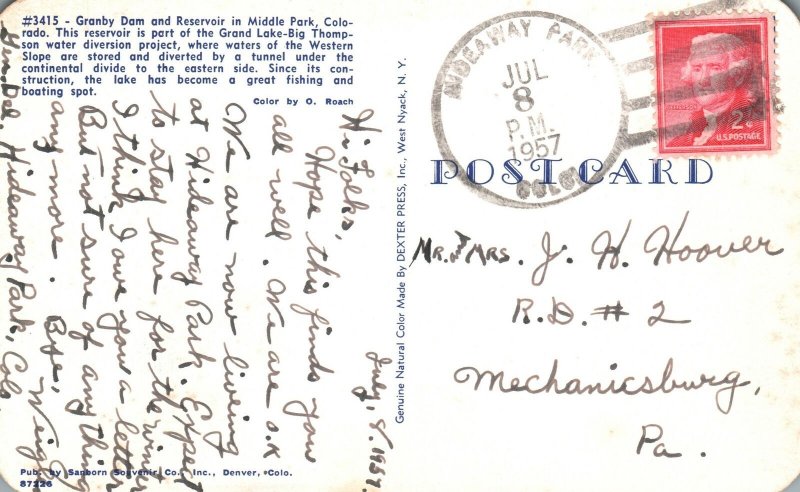 #3415 - Granby Dam and Reservoir in Middle Park, Colo-
rado. This reservoir is part of the Grand Lake-Big Thomp-
son water diversion project, where waters of the Western
Slope are stored and diverted by a tunnel under the
continental divide to the eastern side. Since its con-
struction, the lake has become a great fishing and
boating spot.
Color by O. Roach
July, 8, 1957
Hi Folks,
Hope this finds you
all well. We are o.k
We are now living
at Hideaway Park. Expect
to stay here for the winter
I think I owe you a letter
But not sure of anything
any more. Bye,
Gen. Del. Hideaway Park, Colo
Pub. by Sanborn Souvenir Co., Inc., Denver, Colo.
87226
Genuine Natural Color Made By DEXTER PRESS, Inc., West Nyack, N. Y.
HIDEAWAY PARK
JUL
8
P.M.
1957
COLO.
JEFFERSON
2¢
U.S. POSTAGE
POST CARD
Mr. and Mrs. J. H. Hoover
R.D. # 2
Mechanicsburg,
Pa.